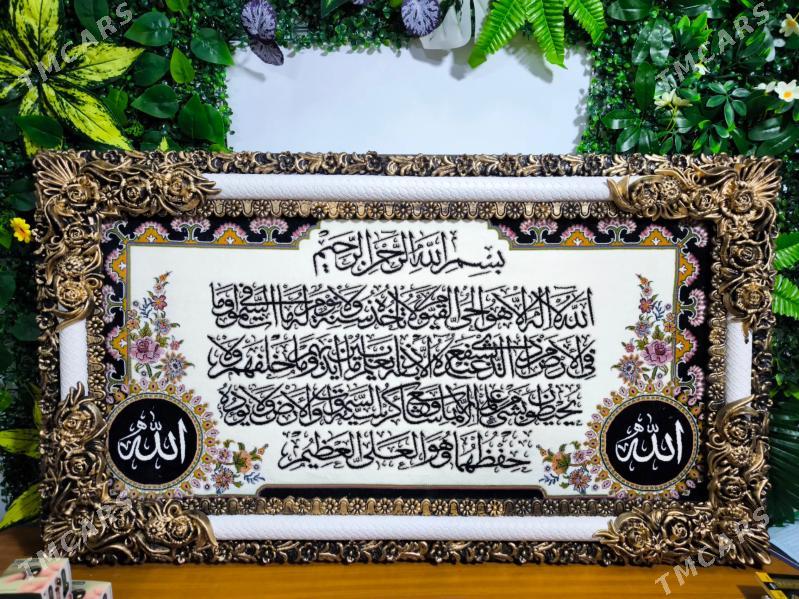 بِسْمِ اللهِ الرَّحْمٰنِ الرَّحِيْمِ
اَللهُ لَا اِلٰهَ اِلَّا هُوَ الْحَيُّ الْقَيُّوْمُ لَا تَأْخُذُهُ سِنَةٌ وَلَا نَوْمٌ لَهُ مَا فِي السَّمٰوٰتِ وَمَا
فِي الْاَرْضِ مَنْ ذَا الَّذِيْ يَشْفَعُ عِنْدَهُ اِلَّا بِاِذْنِهِ يَعْلَمُ مَا بَيْنَ اَيْدِيْهِمْ وَمَا خَلْفَهُمْ وَلَا
يُحِيْطُوْنَ بِشَيْءٍ مِنْ عِلْمِهِ اِلَّا بِمَا شَاءَ وَسِعَ كُرْسِيُّهُ السَّمٰوٰتِ وَالْاَرْضَ وَلَا يَئُوْدُهُ
حِفْظُهُمَا وَهُوَ الْعَلِيُّ الْعَظِيْمُ
الله
الله
TMCARS
TMCARS
TMCARS
TMCARS
TMCARS
TMCARS